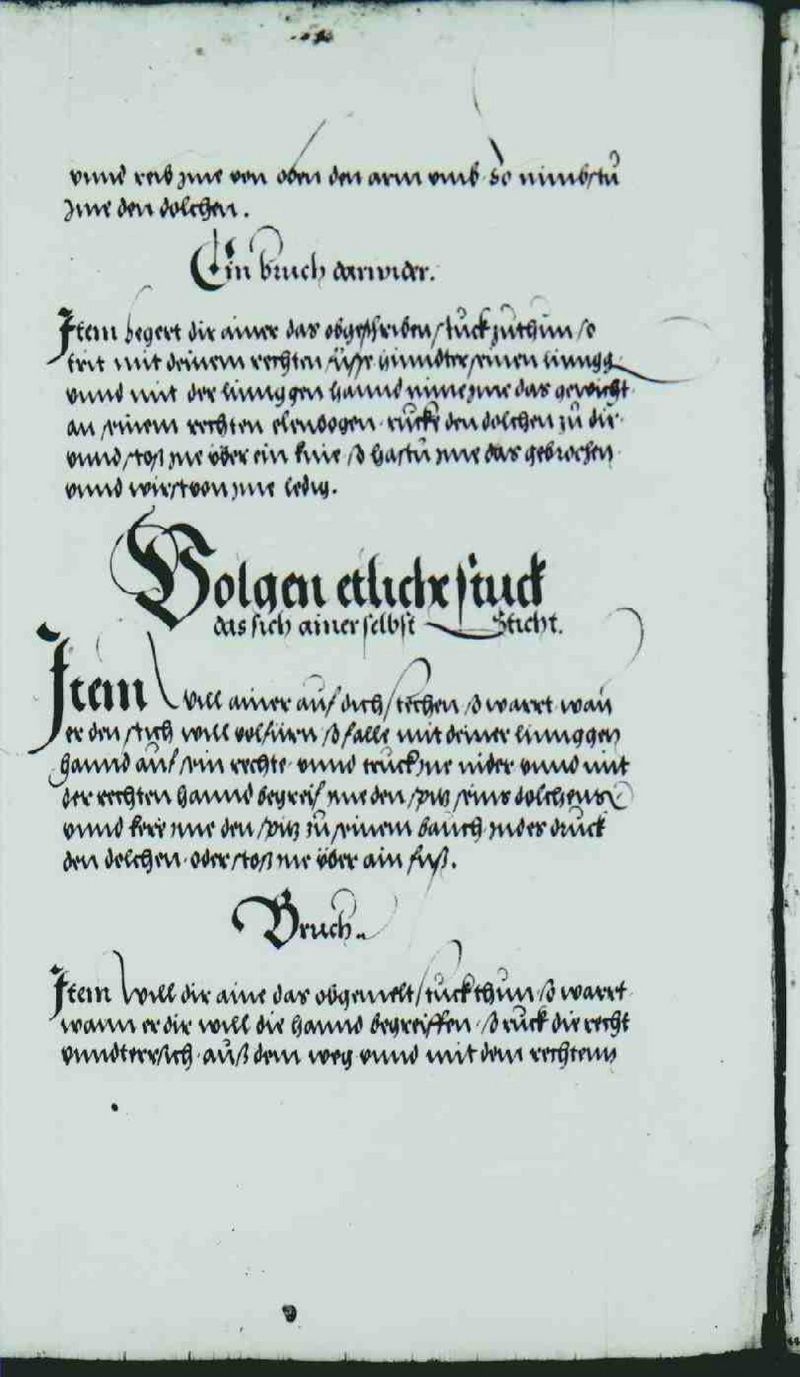 vnnd reib jme von oben den arm vmb so nimbstu
jme den dolchen.
Ein bruch darwider.
Item begert dir ainer das obgeschriben stuck zuthun so
trit mit deinem rechten füsse hinndter seinen linngg
vnnd mit der linnggen hannd nime jme das gewicht
an seinem rechten elenbogen rucke den dolchen zu dir
vnnd stoß jne vber ein knie so hastu jme das gebrochen
vnnd wirst von jme ledig.
Volgen etliche stuck
das sich ainer selbst Sticht.
Item Will ainer auf dich stechen so warrt wan
er den stich will volfürn so falle mit deiner linnggen
hannd auf sein rechte vnnd truck jne nider vnnd mit
der rechten hannd begreif jme den spitz seins dolchenns
vnnd kere jme den spitz zu seinem bauch jndes druck
den dolchen oder stoß jne vber ain fuß.
Bruch.
Item Will dir aine das obgemelt stuck thun so warrt
wann er dir will die hannd begreiffen so ruck die recht
vnndtersich auß dem weg vnnd mit dem rechtenn